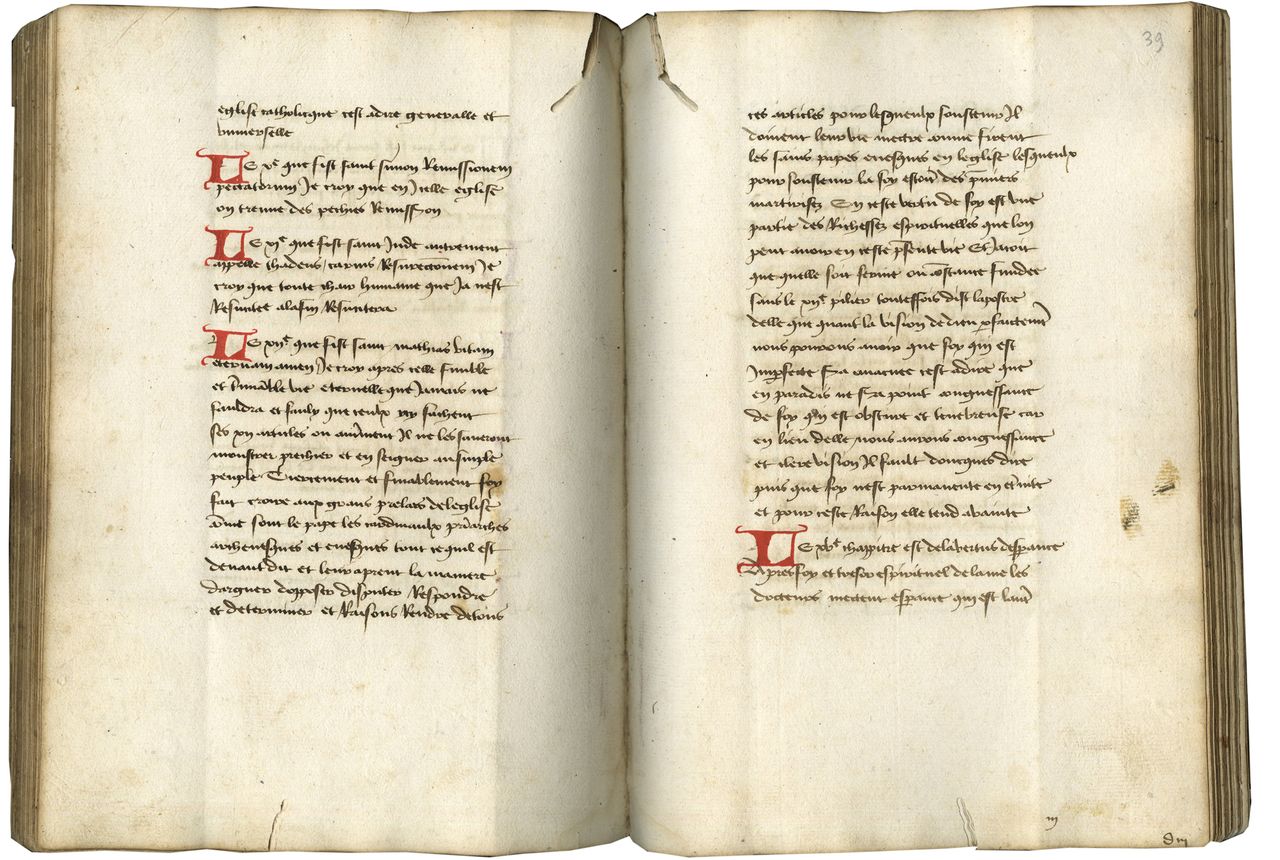 eglise catholicque cest adire generalle et
vniuerselle
LE xe que fist saint simon Remissionem
peccatorum Je croy que en Jcelle eglise
on treuue des pechies Remission
LE xje que fist saint Jude autrement
appelle thadeus carnis Resurectionem Je
croy que toute chair humaine que Ja nest
Resuscitera
LE xije que fist saint mathias vitam
eternam amen Je croy apres celle
et vie eternelle que Jamais ne
fauldra et que ceulx sachent
ses xij articles ou autrement Jl ne les saueront
monstrer preschier et enseigner au simple
peuple Tiercement et finablement foy
fait croire aux grans prelas de leglise
come sont le pape les cardinaulx priarches
archeuesques et euesques tout ce quil est
deuant dit et leur aprent la maniere
darguer dopposer disputer Respondre
et determiner et Raisons Rendre de tous
39
ces articles pour lesqueulx soustenir Jl
doiuent leur vie mectre comme firent
les sains papes euesques en leglise lesqueulx
pour soustenir la foy des pmiers
martirisez En ceste vertu de foy est vne
partie des Richesses espirituelles que lon
peut auoir en ceste psente vie Et Jacoit
que quelle soit ferme ou constance fundee
sans le xije pilier touteffois dist lapostre
delle que quant la vision de dieu
nous pourons auoir que foy qui est
Jmperfecte sera euacuee cest adire que
en paradis ne sera point congnoissance
de foy qui est obscure et tenebreuse car
en lieu delle nous aurons congnoissance
et clere vision Jl fault doncques dire
puis que foy nest parmanente en
et pour ceste Raison elle tend
LE xve chappitre est de la vertus desperance
Apres foy et tresor espirituel de lame les
docteurs mectent esperance qui est